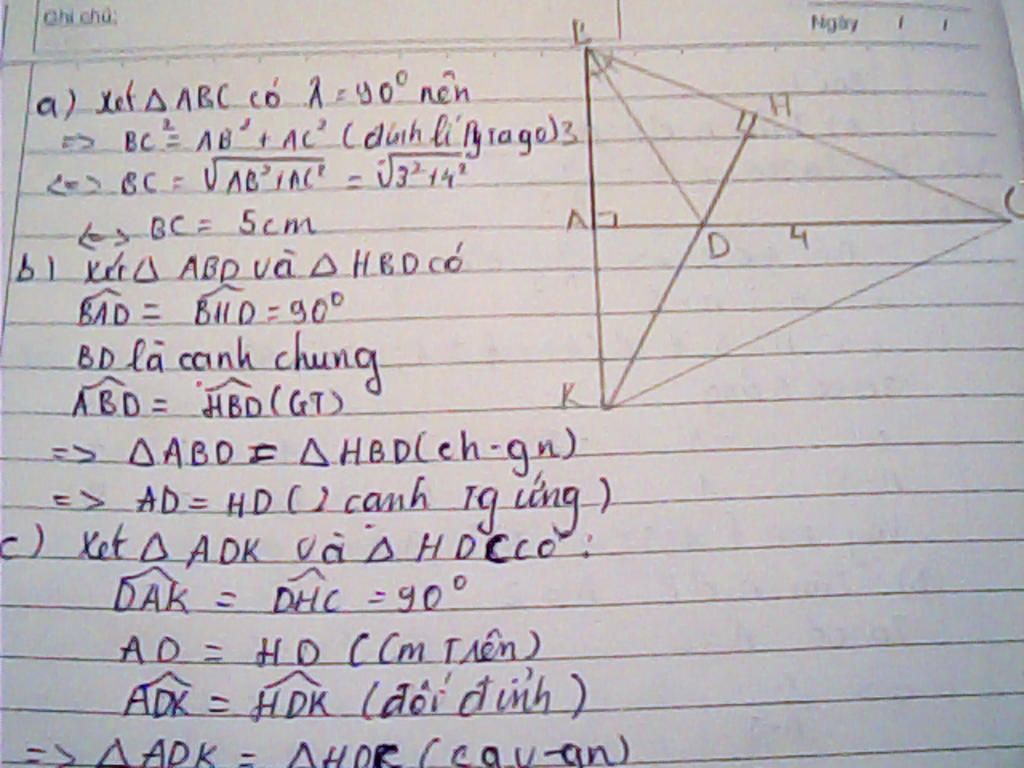 Ghi chú:
Ngày / /
a) Xét Δ ABC có A = 90° nên
=> BC² = AB² + AC² (định lí Pytago) 3
<=> BC = √AB²+AC² = √3²+4²
<=> BC = 5cm
b) Xét Δ ABD và Δ HBD có
BAD = BHD = 90°
BD là cạnh chung
ABD = HBD (GT)
=> Δ ABD = Δ HBD (ch-gn)
=> AD = HD (2 cạnh Tg ứng)
c) Xét Δ ADK và Δ HDC có :
DAK = DHC = 90°
AD = HD (Cm Trên)
ADK = HDK (đối đỉnh)
=> Δ ADK = Δ HDC (cgv-gn)
B
H
A
C
D
4
K